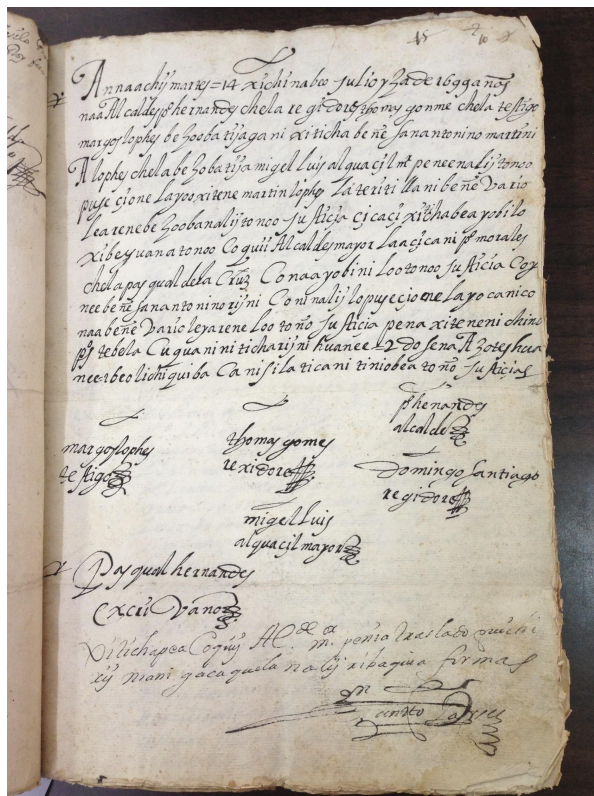 Annaachij martes = 14 xichinabeo Julio yza de 1699 años
naa Alcaldes pº hernandes chela regidores thomas gonme chela testigo
margos lophes behoobatijaga ni xiticha beñe San antonino martini
Alophes chela behobatija migel Luis alguacjl mr peneenalij tonoo
pusecjone layoo xitene martin lophes La teriti llani beñe Vario
learenebe hoobanalij tonoo Justicja cjcacj xitichabea yobilo
xibeyuana tonoo Coquii Alcaldes mayor Laacjca ni pº morales
chela pasqual dela Cruz Conaayobini Lootonoo Justicia Coy
nee beñe San antonino rijni Coninalij lopusecjone layo canico
naa beñe Vario leyarene loo toño Justicia pena xiteneni chino
ps tebela Cuquanini ticharijni huanee L2 do sena Azotes hua
nee tbeo lichiquiba Canisila ticani tiniobea toño Justicias
pº henandes
alcalde
margos lophes
testigo
thomas gomes
rexidore
Domingo Santiago
regidore
migel Luis
alguacjl mayor
Pasqual hernandes
Excrivano
Xitichapea Coquij Al.de m.or penia traslado
xij niani gacaquela nalij ribaquia firmas